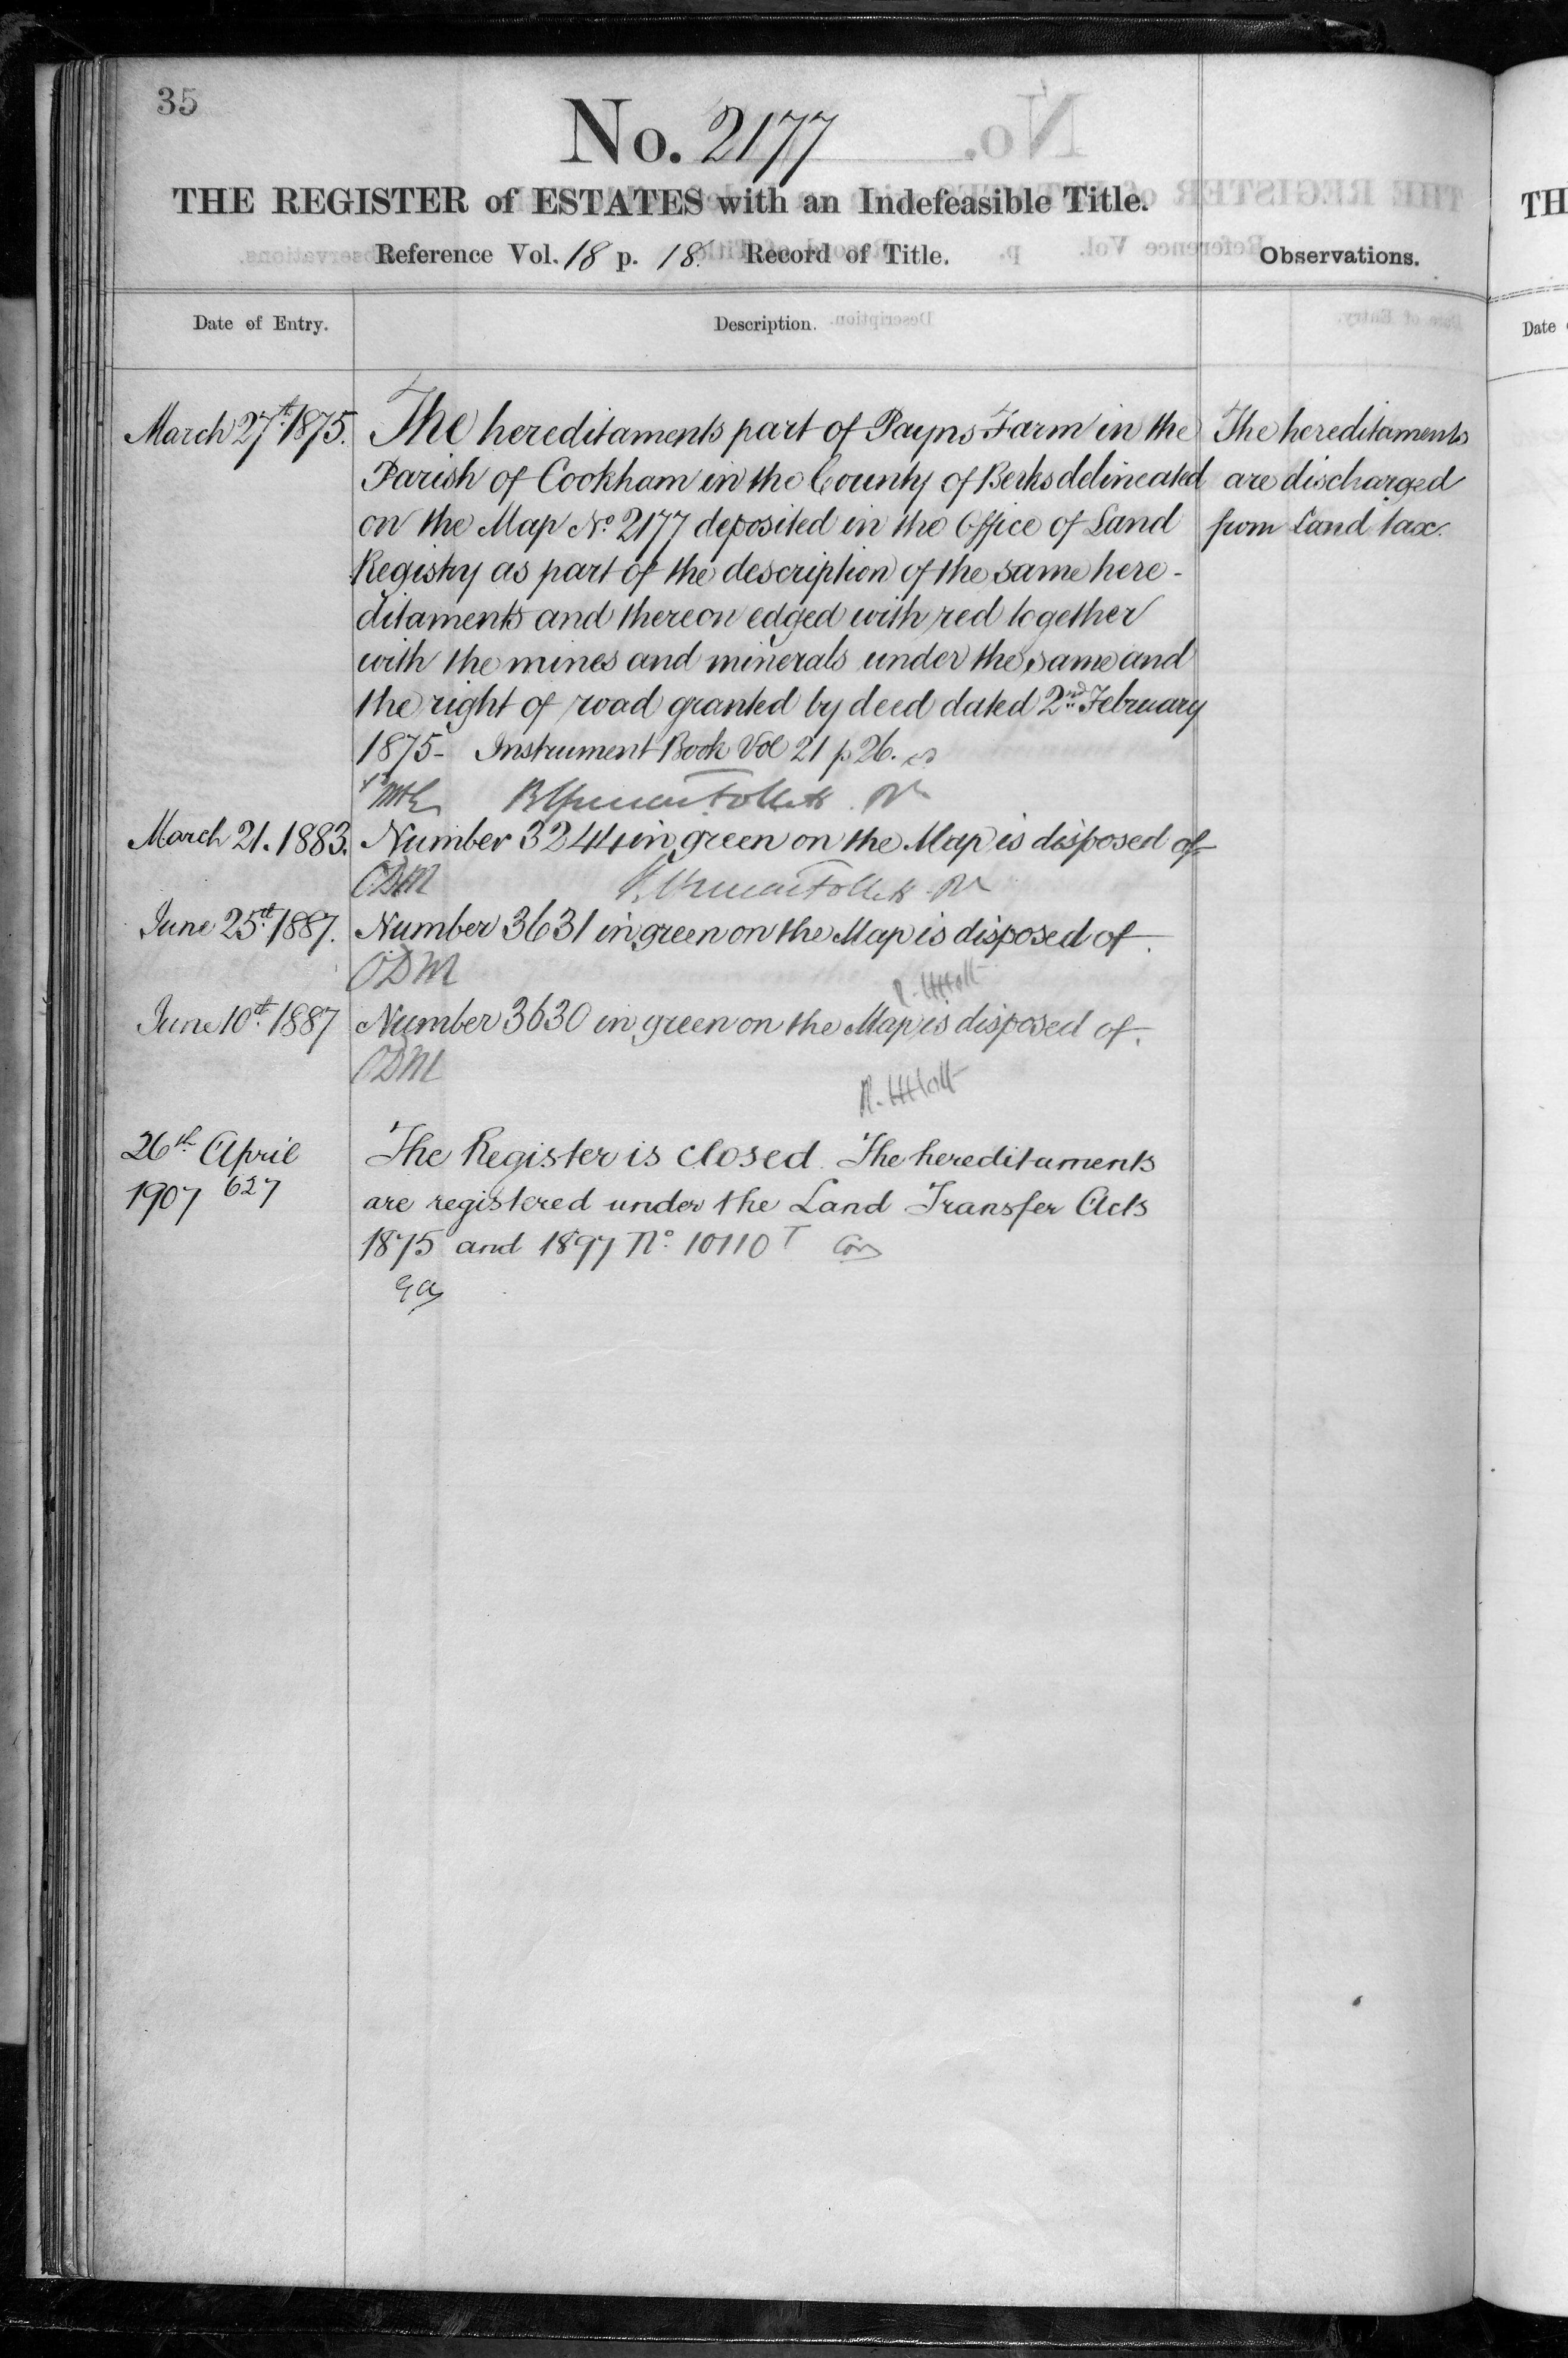 35
No. 2177
THE REGISTER of ESTATES with an Indefeasible Title.
Reference Vol. 18 p. 18. Record of Title.
Observations.
Date of Entry.
Description.
March 27th 1875.
The hereditaments part of Payns Farm in the
Parish of Cookham in the County of Berks delineated
on the Map No. 2177 deposited in the Office of Land
Registry as part of the description of the same here-
ditaments and thereon edged with red together
with the mines and minerals under the same and
the right of road granted by deed dated 2nd February
1875- Instrument Book Vol 21 p 26.
The hereditaments
are discharged
from Land tax.
March 21. 1883.
Number 3244 in green on the Map is disposed of
ODM
June 25th 1887.
Number 3631 in green on the Map is disposed of.
ODM
June 10th 1887
Number 3630 in green on the Map is disposed of.
ODM
26th April
1907 627
The Register is closed. The hereditaments
are registered under the Land Transfer Acts
1875 and 1897 No. 10110 T
TH
Date